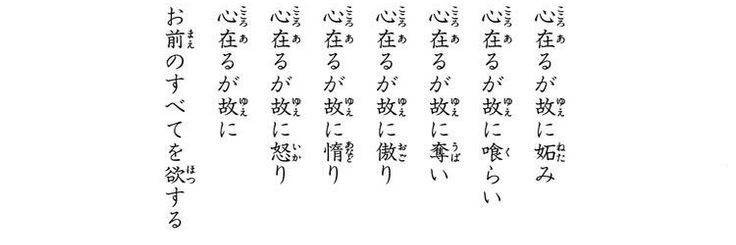 心在るが故に妬み
心在るが故に喰らい
心在るが故に奪い
心在るが故に傲り
心在るが故に惰り
心在るが故に怒り
心在るが故に
お前のすべてを欲する